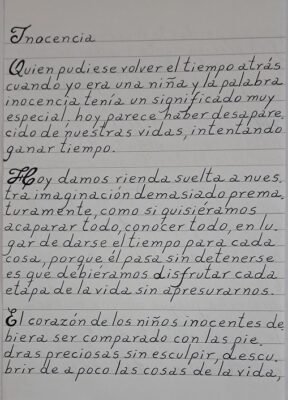 Inocencia
Quien pudiese volver el tiempo atrás
cuando yo era una niña y la palabra
inocencia tenía un significado muy
especial, hoy parece haber desapare.
cido de nuestras vidas, intentando
ganar tiempo.
Hoy damos rienda suelta a nues.
tra imaginación demasiado prema.
turamente, como si quisiéramos
acaparar todo, conocer todo, en lu.
gar de darse el tiempo para cada
cosa, porque él pasa sin detenerse
es que debiéramos disfrutar cada
etapa de la vida sin apresurarnos.
El corazón de los niños inocentes de
biera ser comparado con las pie.
dras preciosas sin esculpir, descu.
brir de a poco las cosas de la vida,